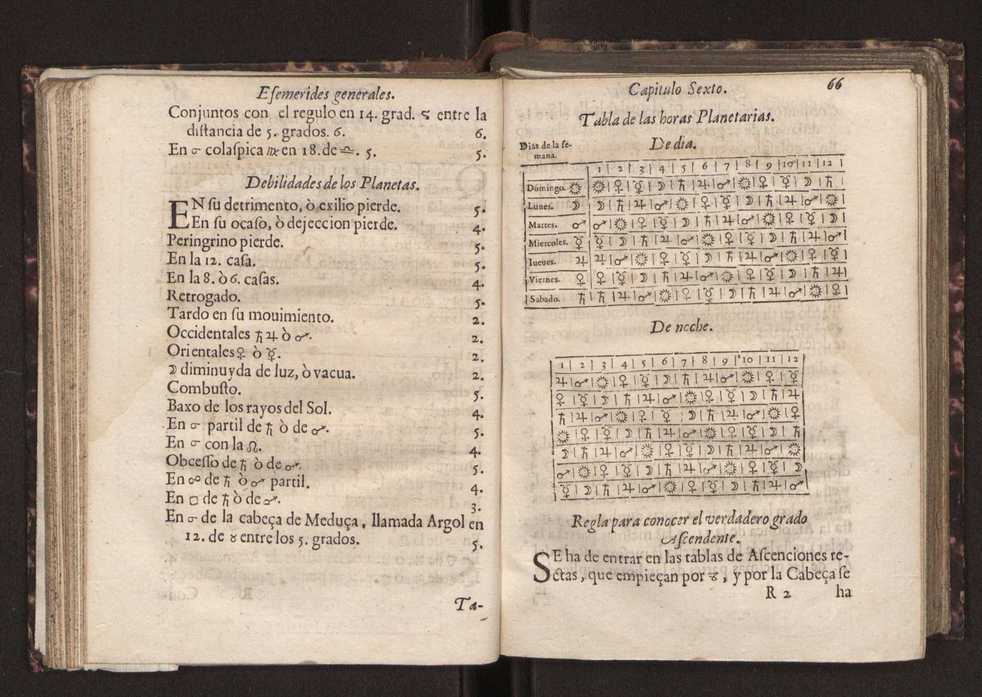 Esemerides generales.
Conjuntos con el regulo en 14. grad. entre la 
distancia de 5. grados. 6. 6.
En ☌ colaspica ♍ en 18. de ♎. 5. 5.
Debilidades de los Planetas.
EN su detrimento, ò exilio pierde. 5.
En su ocaso, ò dejeccion pierde. 4.
Peringrino pierde. 5.
En la 12. casa. 5.
En la 8. ò 6. casas. 4.
Retrogado. 5.
Tardo en su mouimiento. 2.
Occidentales ♄ ♃ ò ♂. 2.
Orientales ♀ ò ☿. 2.
☽ diminuyda de luz, ò vacua. 2.
Combusto. 5.
Baxo de los rayos del Sol. 4.
En ☌ partil de ♄ ò de ♂. 5.
En ☌ con la ☊. 4.
Obcesso de ♄ ò de ♂. 5.
En ☍ de ♄ ò ♂ partil. 4.
En □ de ♄ ò de ♂. 3.
En ☌ de la cabeça de Meduça, llamada Argol en
12. de ♉ entre los 5. grados. 5.
Ta-
Capitulo Sexto. 66
Tabla de las horas Planetarias.
Dias de la se-
mana.
De dia.
1 | 2 | 3 | 4 | 5 | 6 | 7 | 8 | 9 | 10 | 11 | 12 |
Domingo. ☼ ☼ | ♀ | ☿ | ☽ | ♄ | ♃ | ♂ | ☼ | ♀ | ☿ | ☽ | ♄ |
Lunes. ☽ ☽ | ♄ | ♃ | ♂ | ☼ | ♀ | ☿ | ☽ | ♄ | ♃ | ♂ | ☼ |
Martes. ♂ ♂ | ☼ | ♀ | ☿ | ☽ | ♄ | ♃ | ♂ | ☼ | ♀ | ☿ | ☽ |
Miercoles. ☿ ☿ | ☽ | ♄ | ♃ | ♂ | ☼ | ♀ | ☿ | ☽ | ♄ | ♃ | ♂ |
Iueues. ♃ ♃ | ♂ | ☼ | ♀ | ☿ | ☽ | ♄ | ♃ | ♂ | ☼ | ♀ | ☿ |
Viernes. ♀ ♀ | ☿ | ☽ | ♄ | ♃ | ♂ | ☼ | ♀ | ☿ | ☽ | ♄ | ♃ |
Sabado. ♄ ♄ | ♃ | ♂ | ☼ | ♀ | ☿ | ☽ | ♄ | ♃ | ♂ | ☼ | ♀ |
De noche.
1 | 2 | 3 | 4 | 5 | 6 | 7 | 8 | 9 | 10 | 11 | 12
♃ | ♂ | ☼ | ♀ | ☿ | ☽ | ♄ | ♃ | ♂ | ☼ | ♀ | ☿
♀ | ☿ | ☽ | ♄ | ♃ | ♂ | ☼ | ♀ | ☿ | ☽ | ♄ | ♃
♄ | ♃ | ♂ | ☼ | ♀ | ☿ | ☽ | ♄ | ♃ | ♂ | ☼ | ♀
☼ | ♀ | ☿ | ☽ | ♄ | ♃ | ♂ | ☼ | ♀ | ☿ | ☽ | ♄
☽ | ♄ | ♃ | ♂ | ☼ | ♀ | ☿ | ☽ | ♄ | ♃ | ♂ | ☼
♂ | ☼ | ♀ | ☿ | ☽ | ♄ | ♃ | ♂ | ☼ | ♀ | ☿ | ☽
☿ | ☽ | ♄ | ♃ | ♂ | ☼ | ♀ | ☿ | ☽ | ♄ | ♃ | ♂
Regla para conocer el verdadero grado
Ascendente.
SE ha de entrar en las tablas de Ascenciones re-
ctas, que empieçan por ♑, y por la Cabeça se
R 2 ha